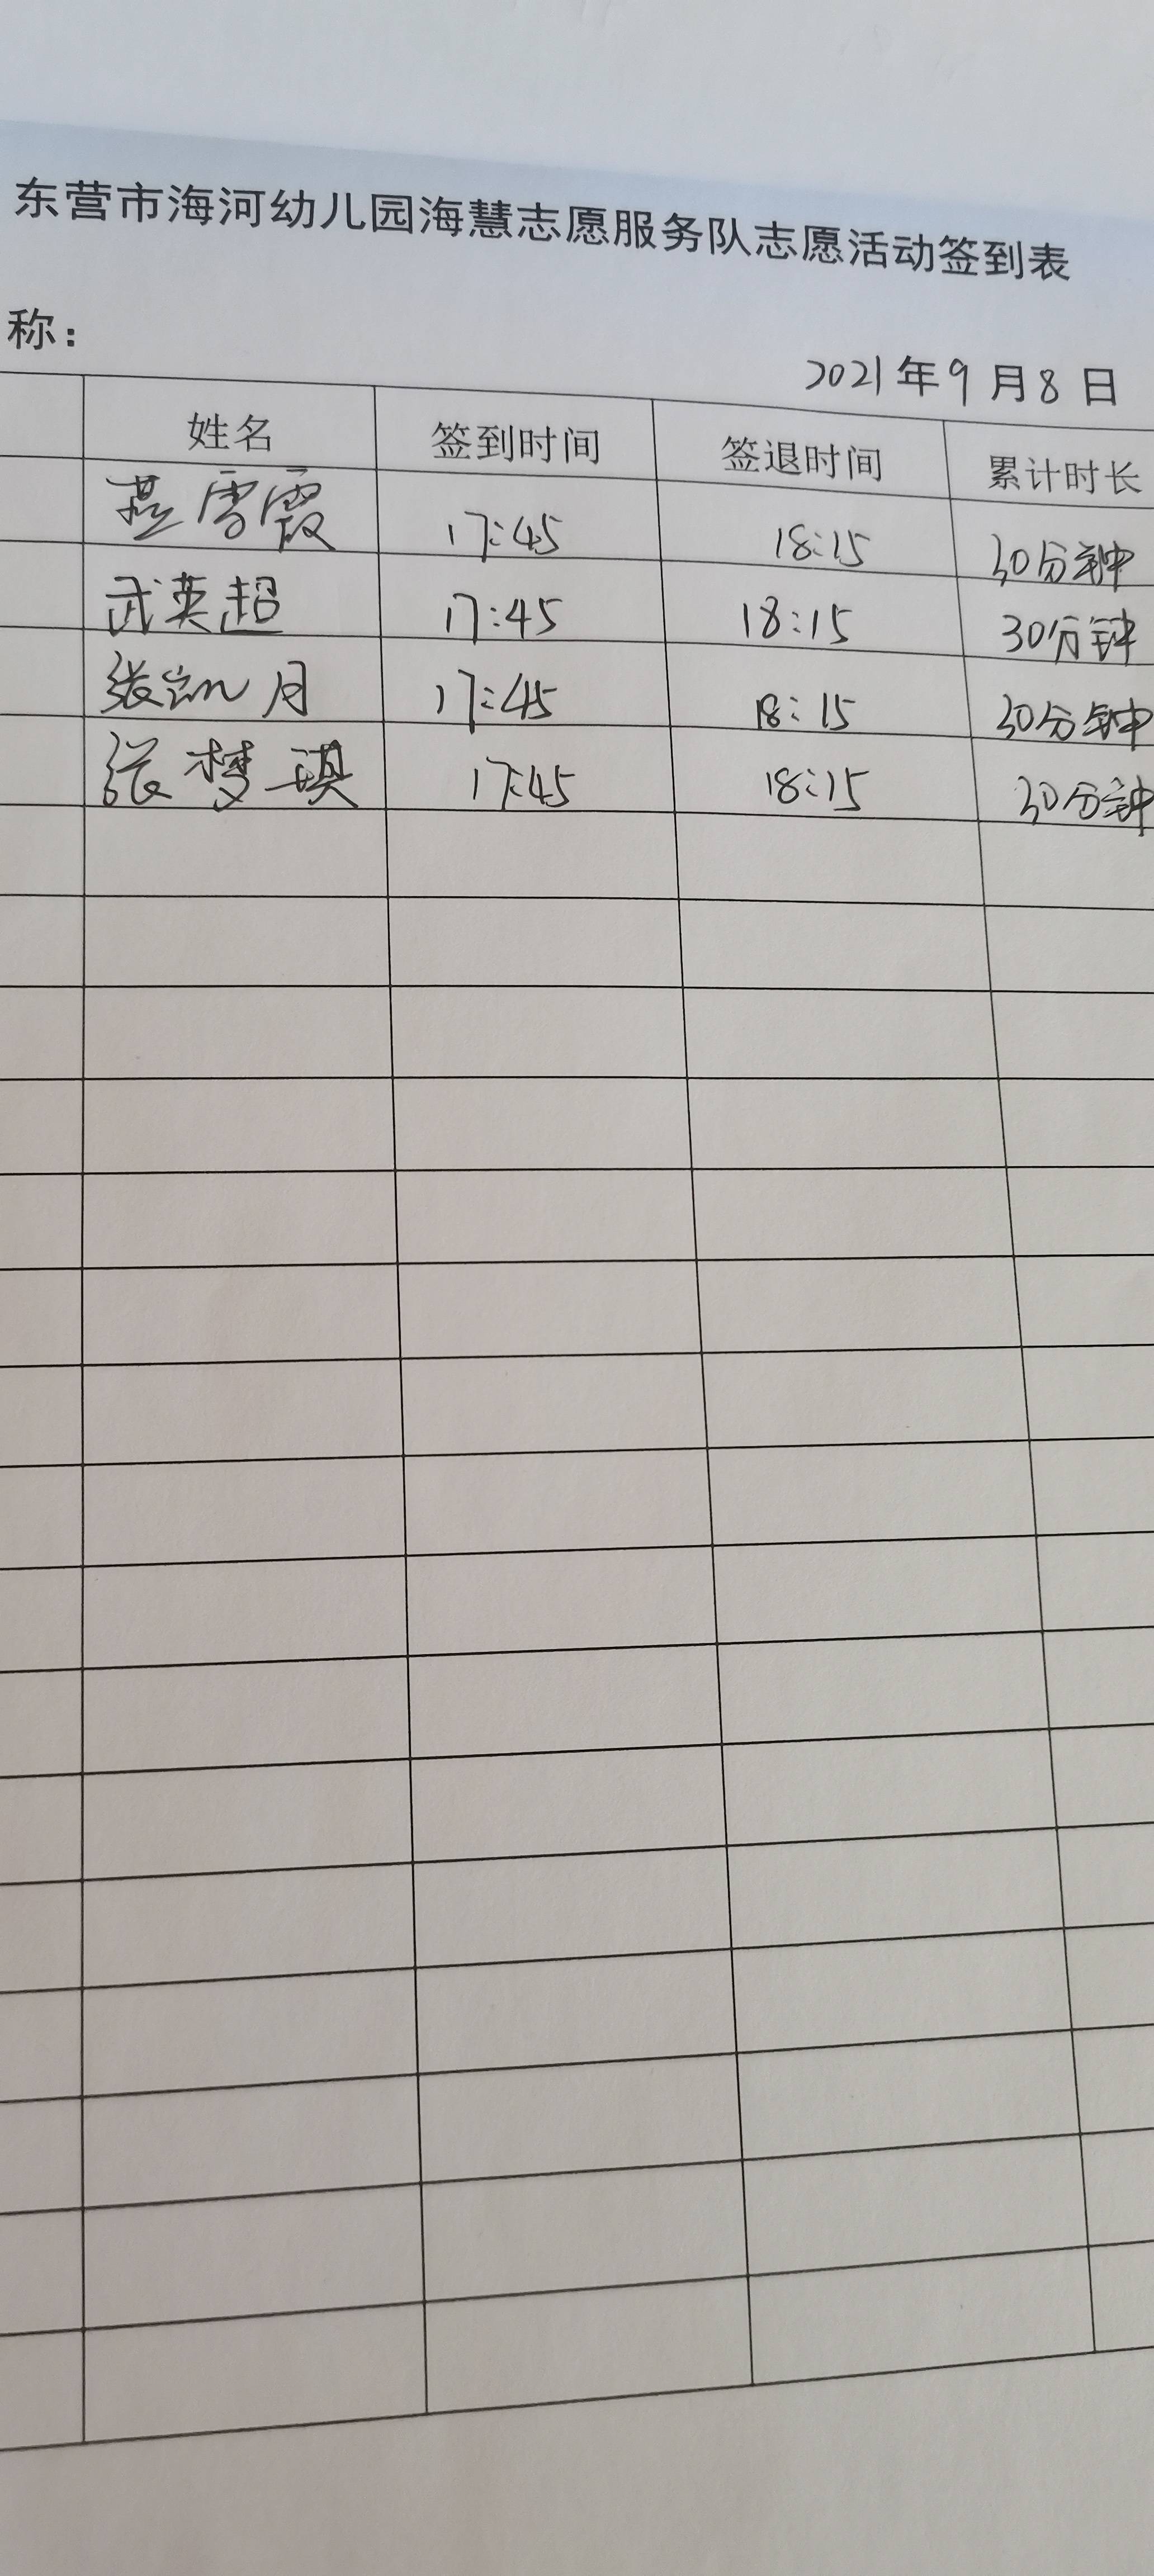 东营市海河幼儿园海慧志愿服务队志愿活动签到表
称：
2021年9月8日
姓名 签到时间 签退时间 累计时长
燕雪霞 17:45 18:15 30分钟
武英超 17:45 18:15 30分钟
张凯月 17:45 18:15 30分钟
张梦琪 17:45 18:15 30分钟